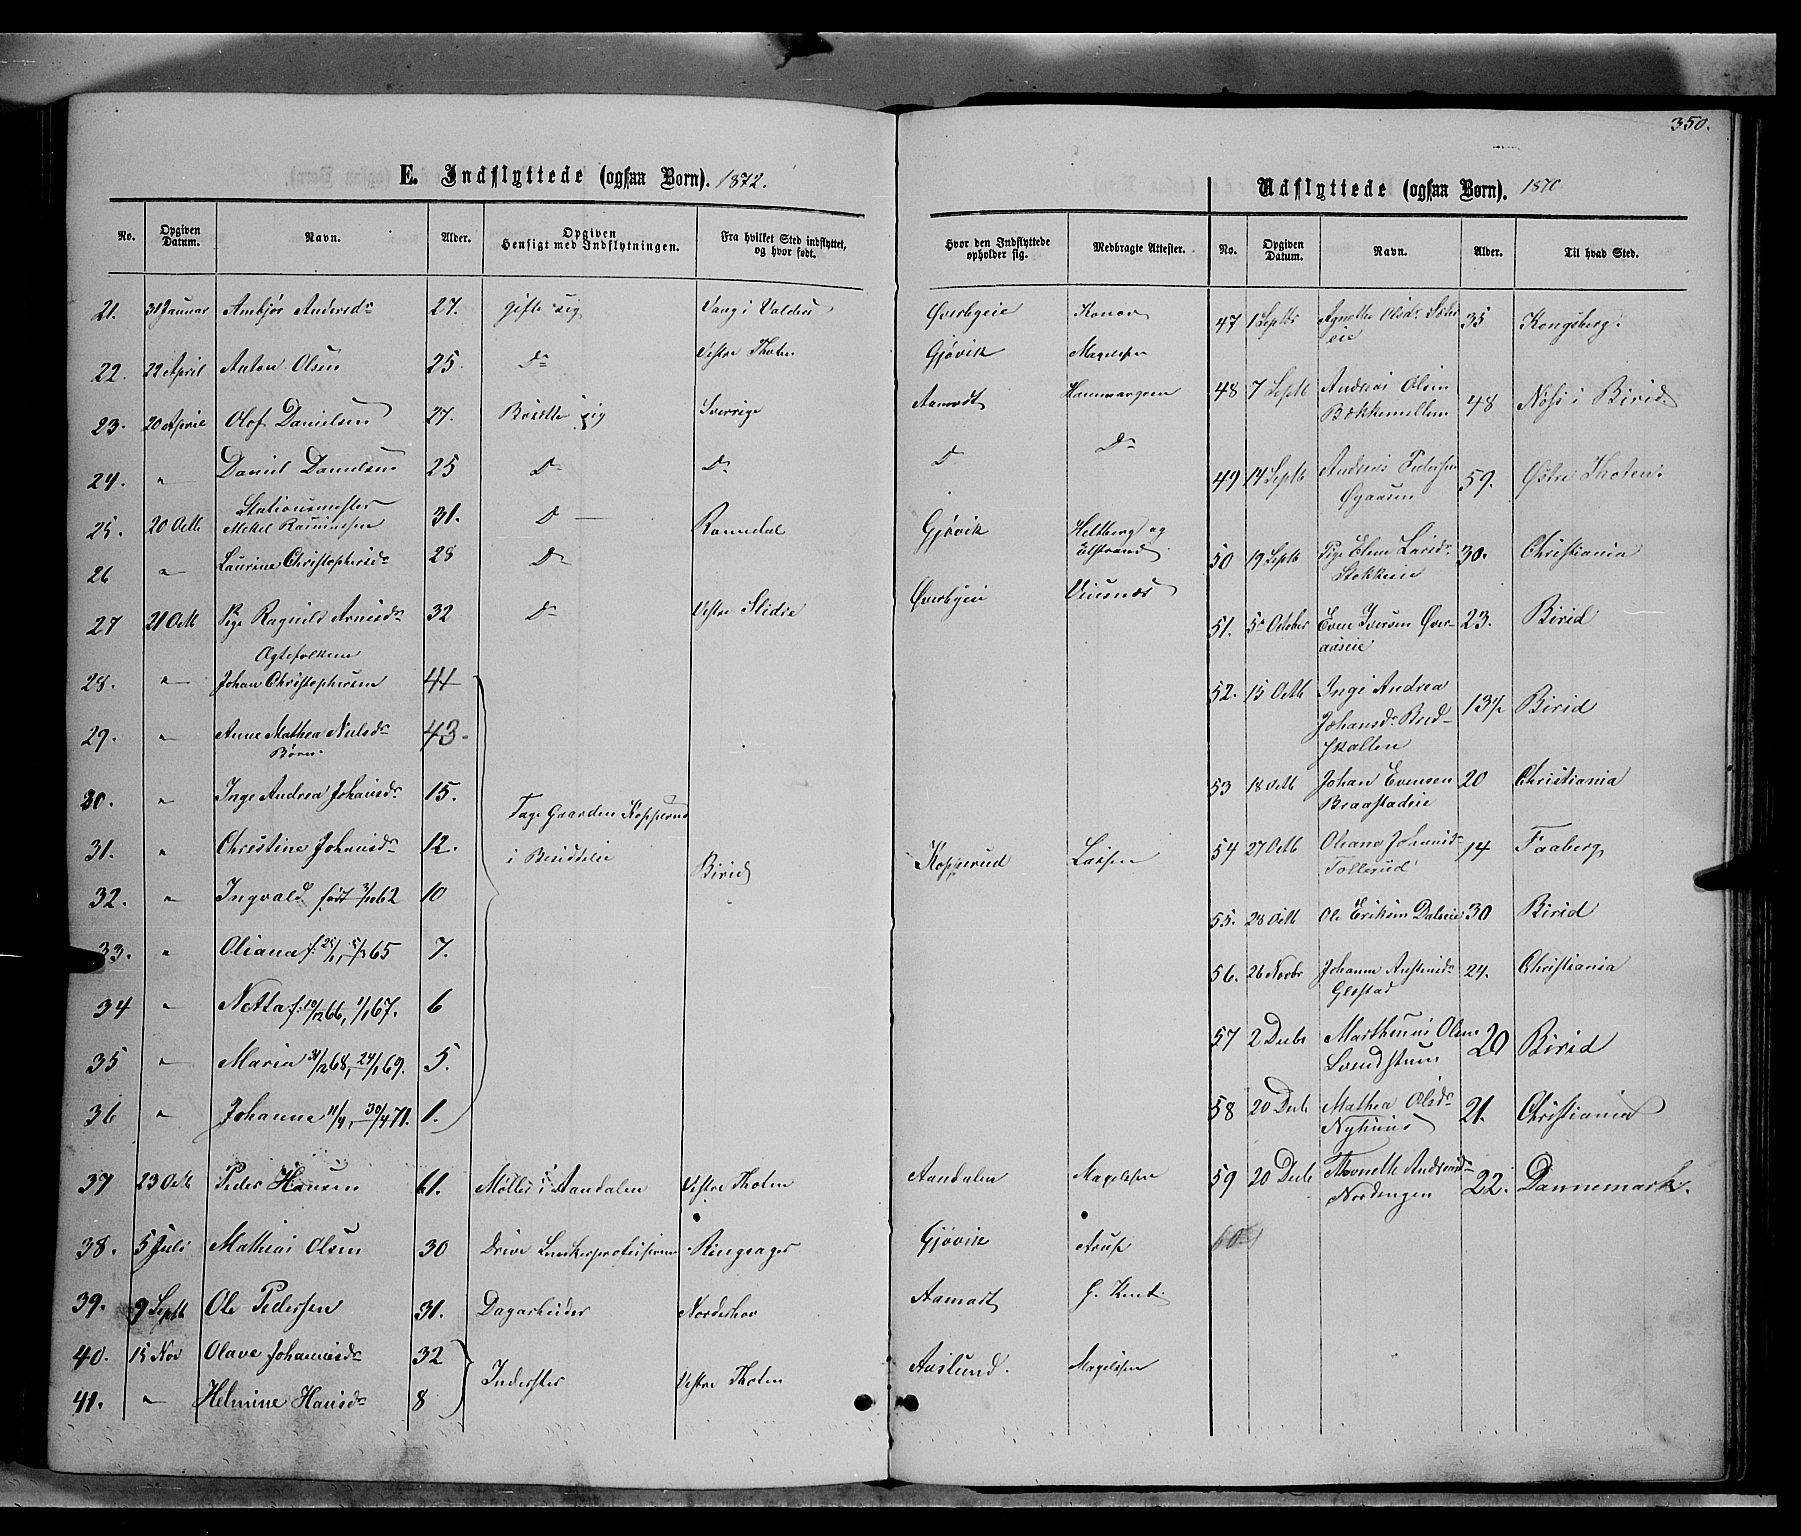 350.
E. Indflyttede (ogsaa Børn). 1872.
No. Opgiven Datum. Navn. Alder. Opgiven Hensigt med Indflytningen. Fra hvilket Sted indflyttet, og hvor født. Hvor den Indflyttede opholder sig. Medbragte Attester.
21. 31 Januar Ambjør Andersdr 27. gifte sig Vang i Valders Øverbyeie Konow
22. 22 April Anton Olsen 25. Do Vestre Thoten Gjøvik Magelssen
23. 20 April Olof Danielsen 27. Bosætte sig Sverrige Aamodt Hammargren
24. " Daniel Danielsen 25 Do Do Do Do
Stationsmester
25. 20 Octb Mekel Rasmussen 31. Do Romsdal Gjøvik Heltberg og
Elstrand
26 " Laurine Christophersdr 28 Do
27 21 Octb Pige Ragnild Arnesdr 32 Do Vestre Slidre Øverbyeie
Ægtefolkene
28. " Johan Christophersen 41
29. " Anne Mathea Nielsdr 43.
Børn.
30. " Inge Andrea Johansdr 15. Tage Gaarden Kopperud
31. " Christine Johansdr 12. i Besiddelse Birid Kopperud Lassen
32. " Ingvald født 3/1 62 10
33. " Oliana f. 25/1, 5/3 65 7.
34 " Netta f. 10/12 66, 1/1 67. 6
35 " Maria 31/12 68, 24/1 69. 5.
36 " Johanne 11/4, 30/4 71. 1.
37 23 Octb Peder Hansen 61. Møller i Aandalen Vestre Thoten Aandalen Magelssen
38. 5 Juli Mathias Olsen 30 Drive Ringsager Gjøvik Arup
39. 9 Septb Ole Pedersen 31. Dagarbeider Norderhov Aamodt
40. 15 Nov Olave Johannesdr 32 Inderster Vestre Thoten Aaslund. Magelssen
41. " Helmine Hansdr 8
Udflyttede (ogsaa Børn). 1870
No. Opgiven Datum. Navn. Alder. Til hvad Sted.
47 1 Septbr Agnethe Olsdr 35 Kongsberg.
eie
48 7 Septb Andreas Olsen 48 Næss i Birid
Bækkemellem
49 14 Septb Andreas Pedersen 59. Østre Thoten.
Øgaarden
50 19 Septb Pige Elene Larsdr 30. Christiania
Stokkeie
51. 5 October Even Iversen Øver- 23. Birid
aaseie
52. 15 Octb Inge Andrea 13½ Birid
Johansdr Bred-
skallen
53 18 Octb Johan Evensen 20 Christiania
Braastadeie
54 27 Octb Oliana Johansdr 14 Faaberg
Tollerud
55. 28 Octb Ole Eriksen Dalseie 30 Birid
56. 26 Novbr Johanne Austensdr 24. Christiania
Glæstad
57 2 Decbr Marthinus Olsen 20 Birid
58 20 Decb Mathea Olsdr 21. Christiania
Nyhuus
59 20 Decb Thonette Andreasdr 22. Dannemark.
Nordengen
60